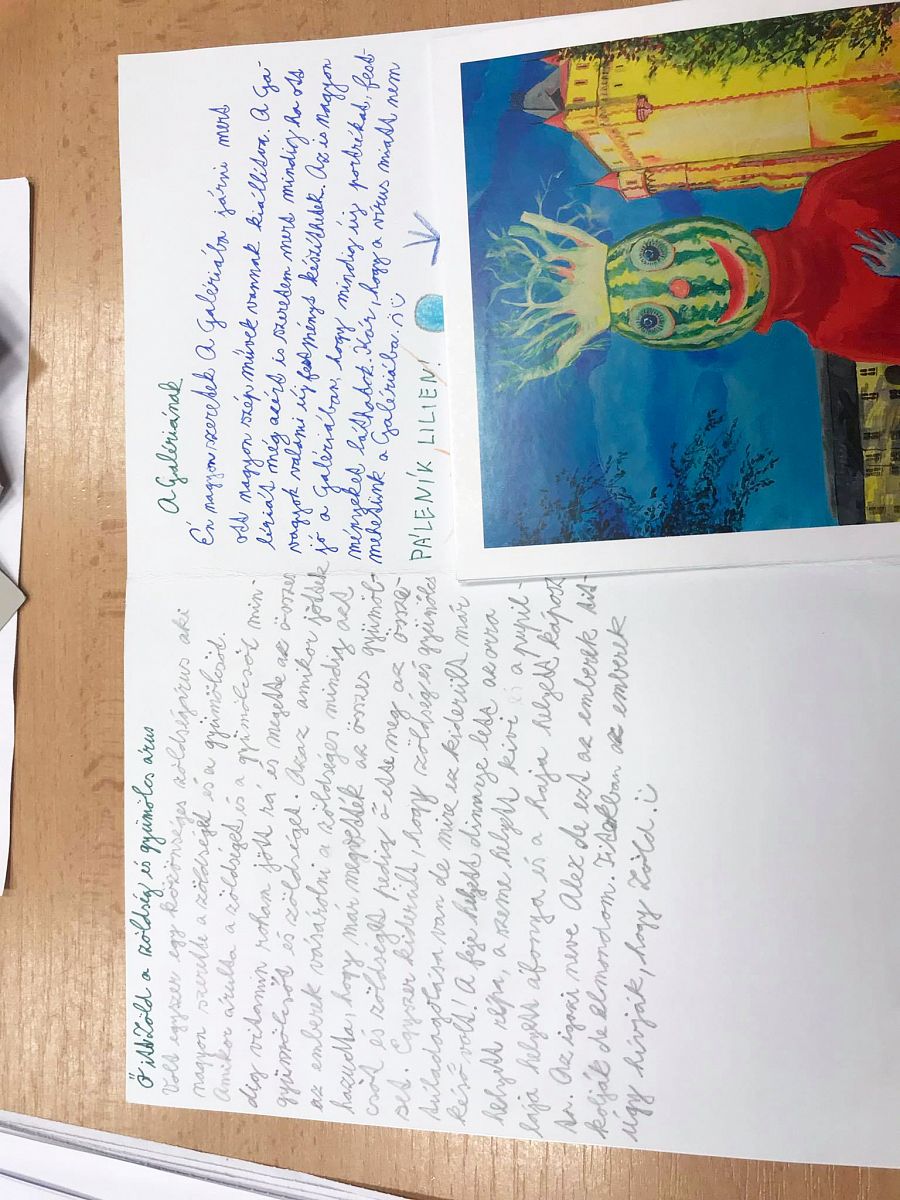 Ő itt Zöld a zöldség és gyümölcs árus
Volt egyszer egy közönséges zöldségárus aki
nagyon szerette a zöldséget és a gyümölcsöt.
Amikor árulta a zöldséget és a gyümölcsöt min-
dig vidamin roham jött rá és megette az összes
gyümölcsöt és zöldséget. Azaz amikor jöttek
az emberek vásárolni a zöldséges mindig azt
hazudta, hogy már megvették az összes gyümöl-
csöt és zöldséget pedig ő ette meg az össze-
set. Egyszer kiderült, hogy zöldség és gyümölcs
túladagolása van de mire ez kiderült már
késő volt! A feje helyett dinnye lett az orra
helyett répa, a szeme helyett kivi és a pupil-
lája helyett áfonya és a haja helyett káposz-
ta. Az igazi neve Alez de ezt az emberek tit-
kolják de elmondom. Titokban az emberek
úgy hívják, hogy Zöld.
A Galériának
Én nagyon szeretek A Galériába járni mert
ott nagyon szép művek vannak kiállítva. A Ga-
lériát még azért is szeretem mert mindig ha ott
vagyok valami új festményt készíthetek. Az is nagyon
jó a Galériában, hogy mindig új portrékat, fest-
ményeket láthatok. Kár, hogy a vírus miatt nem
mehetünk a Galériába.
PÁLENÍK LILIEN!